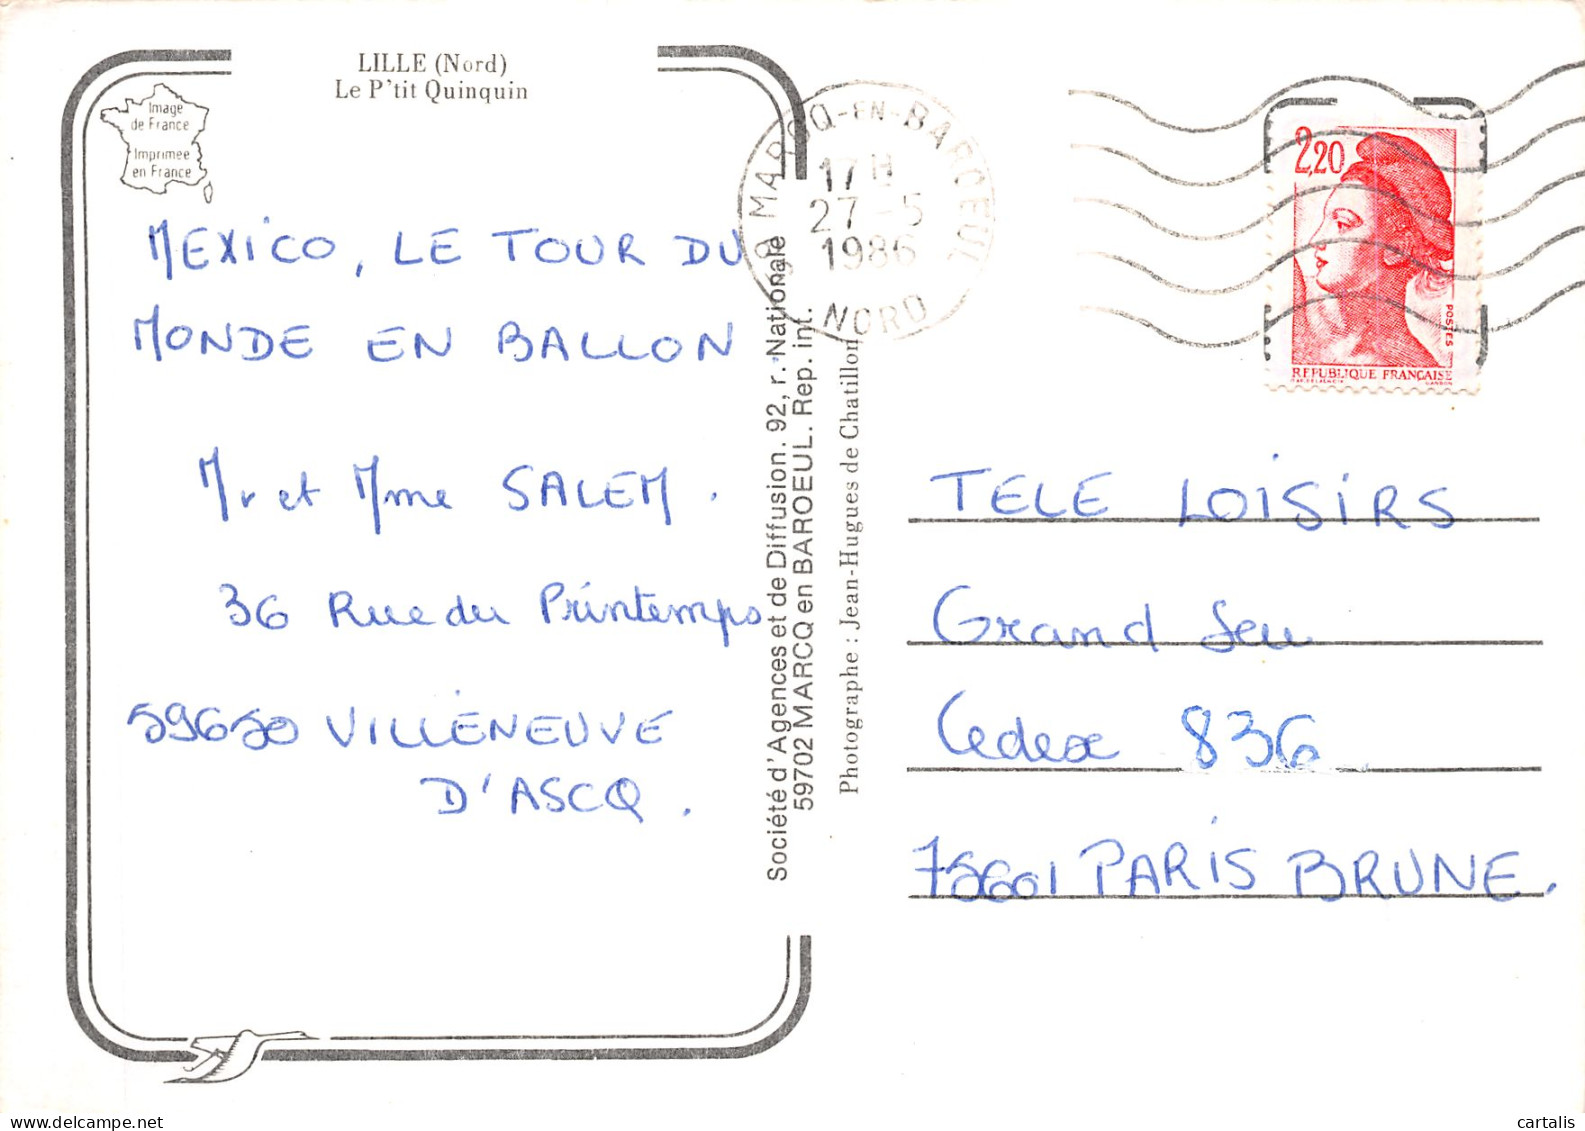 LILLE (Nord)
Le P'tit Quinquin
Image
de France
Imprimée
en France
MEXICO, LE TOUR DU
MONDE EN BALLON
Mr et Mme SALEM.
36 Rue du Printemps
59650 VILLENEUVE
D'ASCQ.
Société d'Agences et de Diffusion. 92, r. Nationale
59702 MARCQ en BAROEUL. Rep. int.
Photographe : Jean-Hugues de Chatillon
MARCQ-EN-BAROEUL
17H
27-5
1986
NORD
2,20
POSTES
REPUBLIQUE FRANÇAISE
TELE LOISIRS
Grand Jeu
Cedex 836
75601 PARIS BRUNE.
cartalis